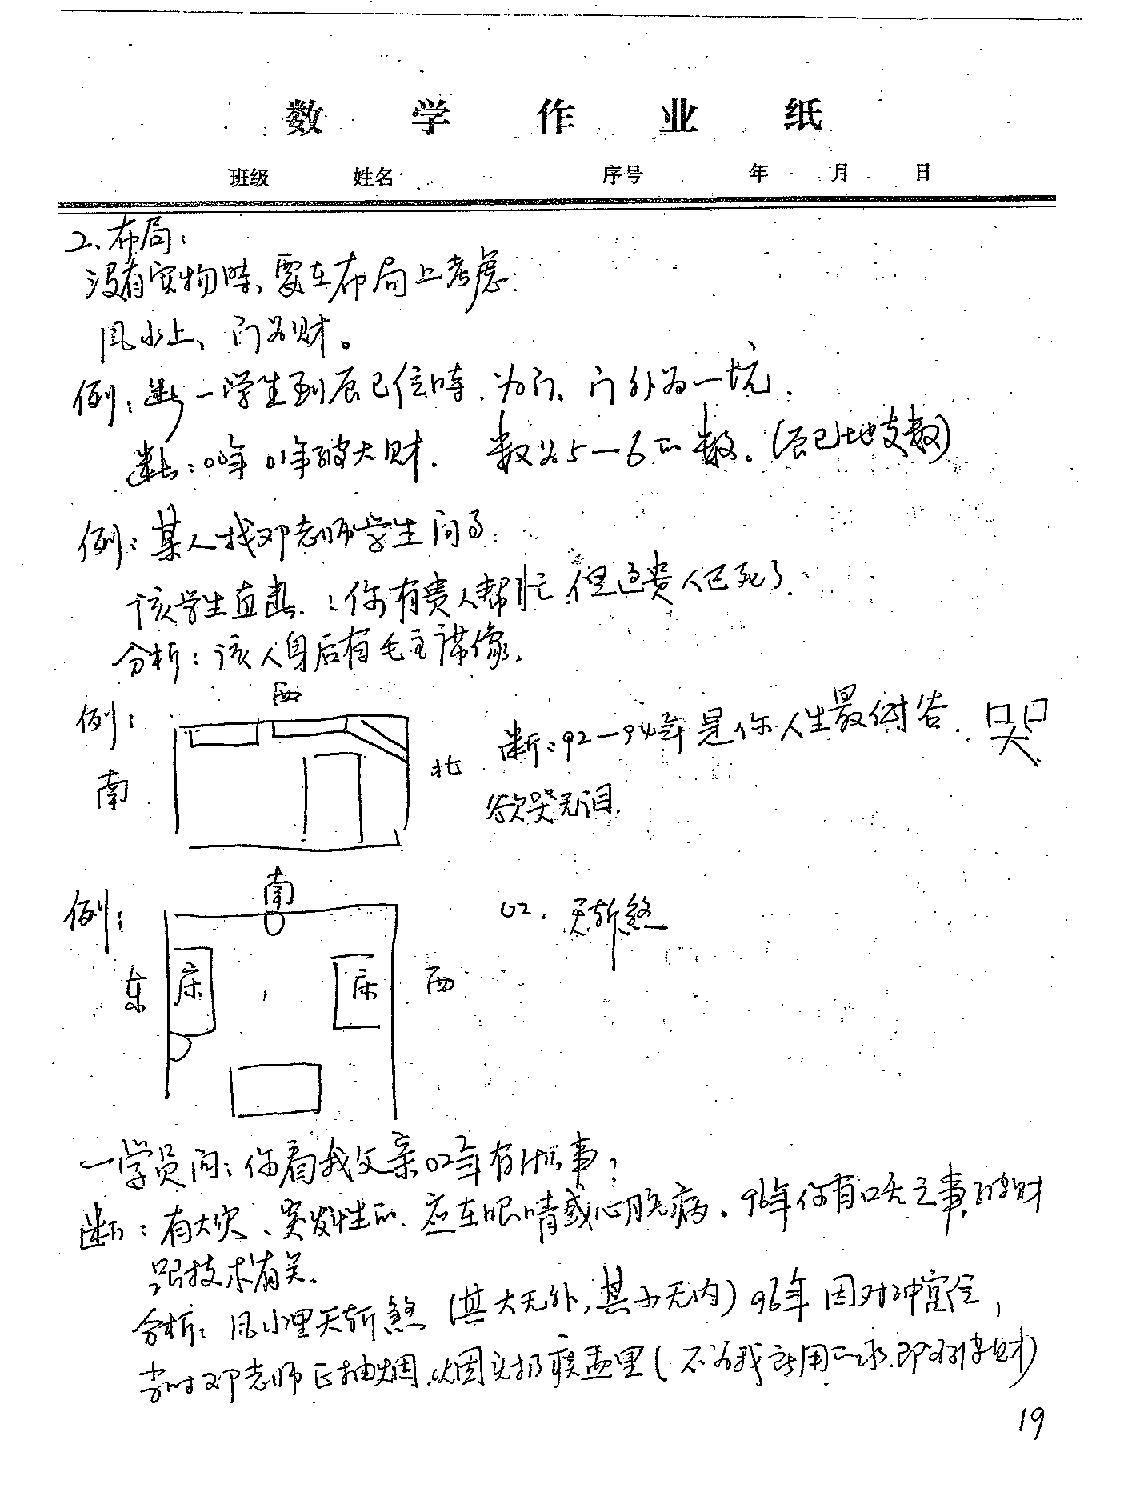 数学作业纸
班级 姓名 序号 年 月 日
2、布局：
没有实物时，要在布局上考虑.
风水上、门为财。
例：断一学生到辰巳位时.为门.门外为一坑.
断：00年01年破大财. 数为5—6的数。(辰巳地支数)
例：某人找邓老师学生问事.
该学生直断：你有贵人帮忙.但这贵人已死了.
分析：该人身后有毛主席像.
例：
西
南
北
断：92—94年是你人生最倒 .哭
欲哭无泪.
例：
南
东
床
床
西
02. 天斩煞
一学员问：你看我父亲02年有什么事？
断：有大灾、突发性的.应在眼睛或心脏病.96年你有口舌之事
跟技术有关.
分析：风水里天斩煞(其大无外,其小无内)96年因对冲 ,
当时邓老师正抽烟.烟头扔 里(不为我所用的水.即为 财)
19